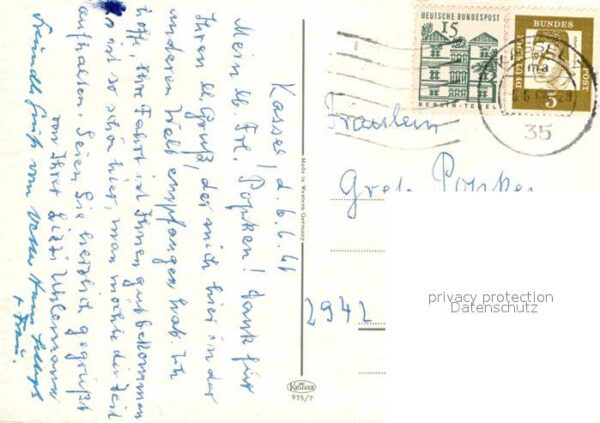 Kassel, d. 6.6.
Mein lb. Frl. Popken! Dank für
Ihren lb. Gruß, der mich hier in der
anderen Welt empfangen hat. Ich
hoffe, Ihre Fahrt ist Ihnen gut bekommen
es ist so schön hier, man möchte die Zeit
aufhalten. Seien Sie herzlich gegrüßt
von Ihrer
Freundl. Grüße vom
+ Frau.
Made in Western Germany
KRÜGER
975/7
DEUTSCHE BUNDESPOST
15
BERLIN-TEGEL
BUNDES
POST
DEUTSCHE
5
35
Fräulein
Gret. Popken
2942
privacy protection
Datenschutz